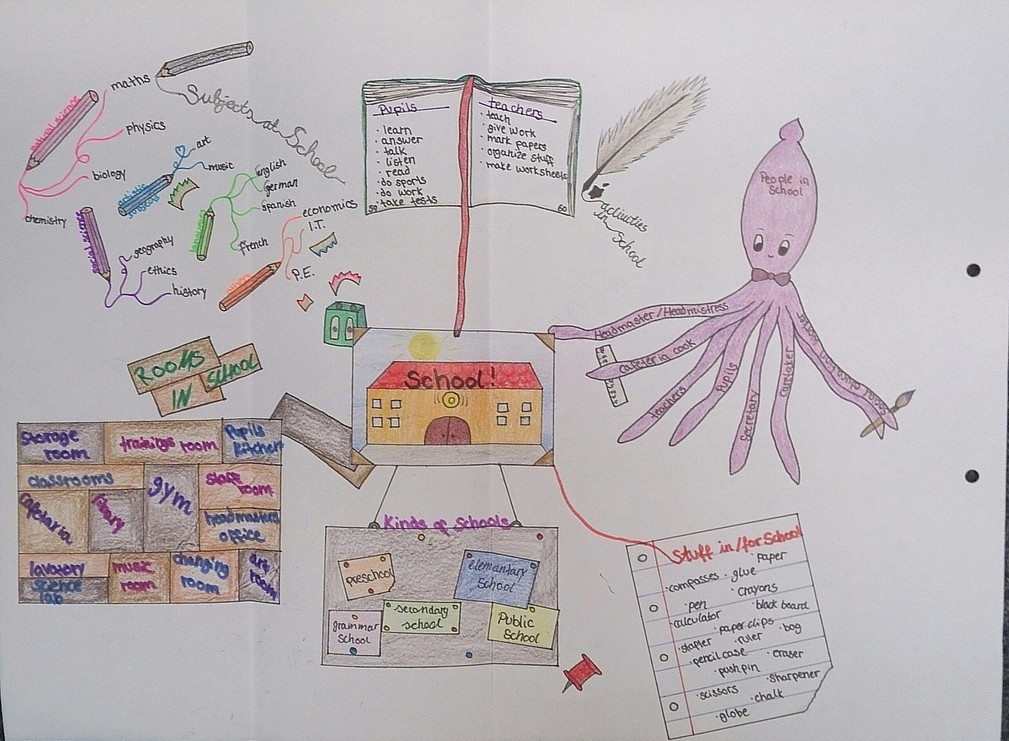 Subjects at School
natural science
maths
physics
biology
chemistry
artistic subjects
art
music
languages
English
german
spanish
French
social science
geography
ethics
history
economics
I.T.
P.E.
Pupils
· learn
· answer
· talk
· listen
· read
· do sports
· do work
· take tests
59
teachers
· teach
· give work
· mark papers
· organize stuff
· make worksheets
60
activities
in
School
People in
School
Headmaster/Headmistress
cafeteria cook
teachers
Pupils
Secretary
caretaker
School!
ROOMS
IN
SCHOOL
storage
room
trainings room
Pupils
kitchen
classrooms
gym
staff
room
cafeteria
library
headmasters
office
lavatory
science
lab
music
room
changing
room
art
room
Kinds of Schools
preschool
elementary
school
secondary
school
grammar
School
Public
School
Stuff in/for School
· paper
· compasses
· glue
· crayons
· pen
· black board
· calculator
· paper clips
· bag
· stapler
· ruler
· pencil case
· eraser
· push pin
· sharpener
· scissors
· chalk
· globe